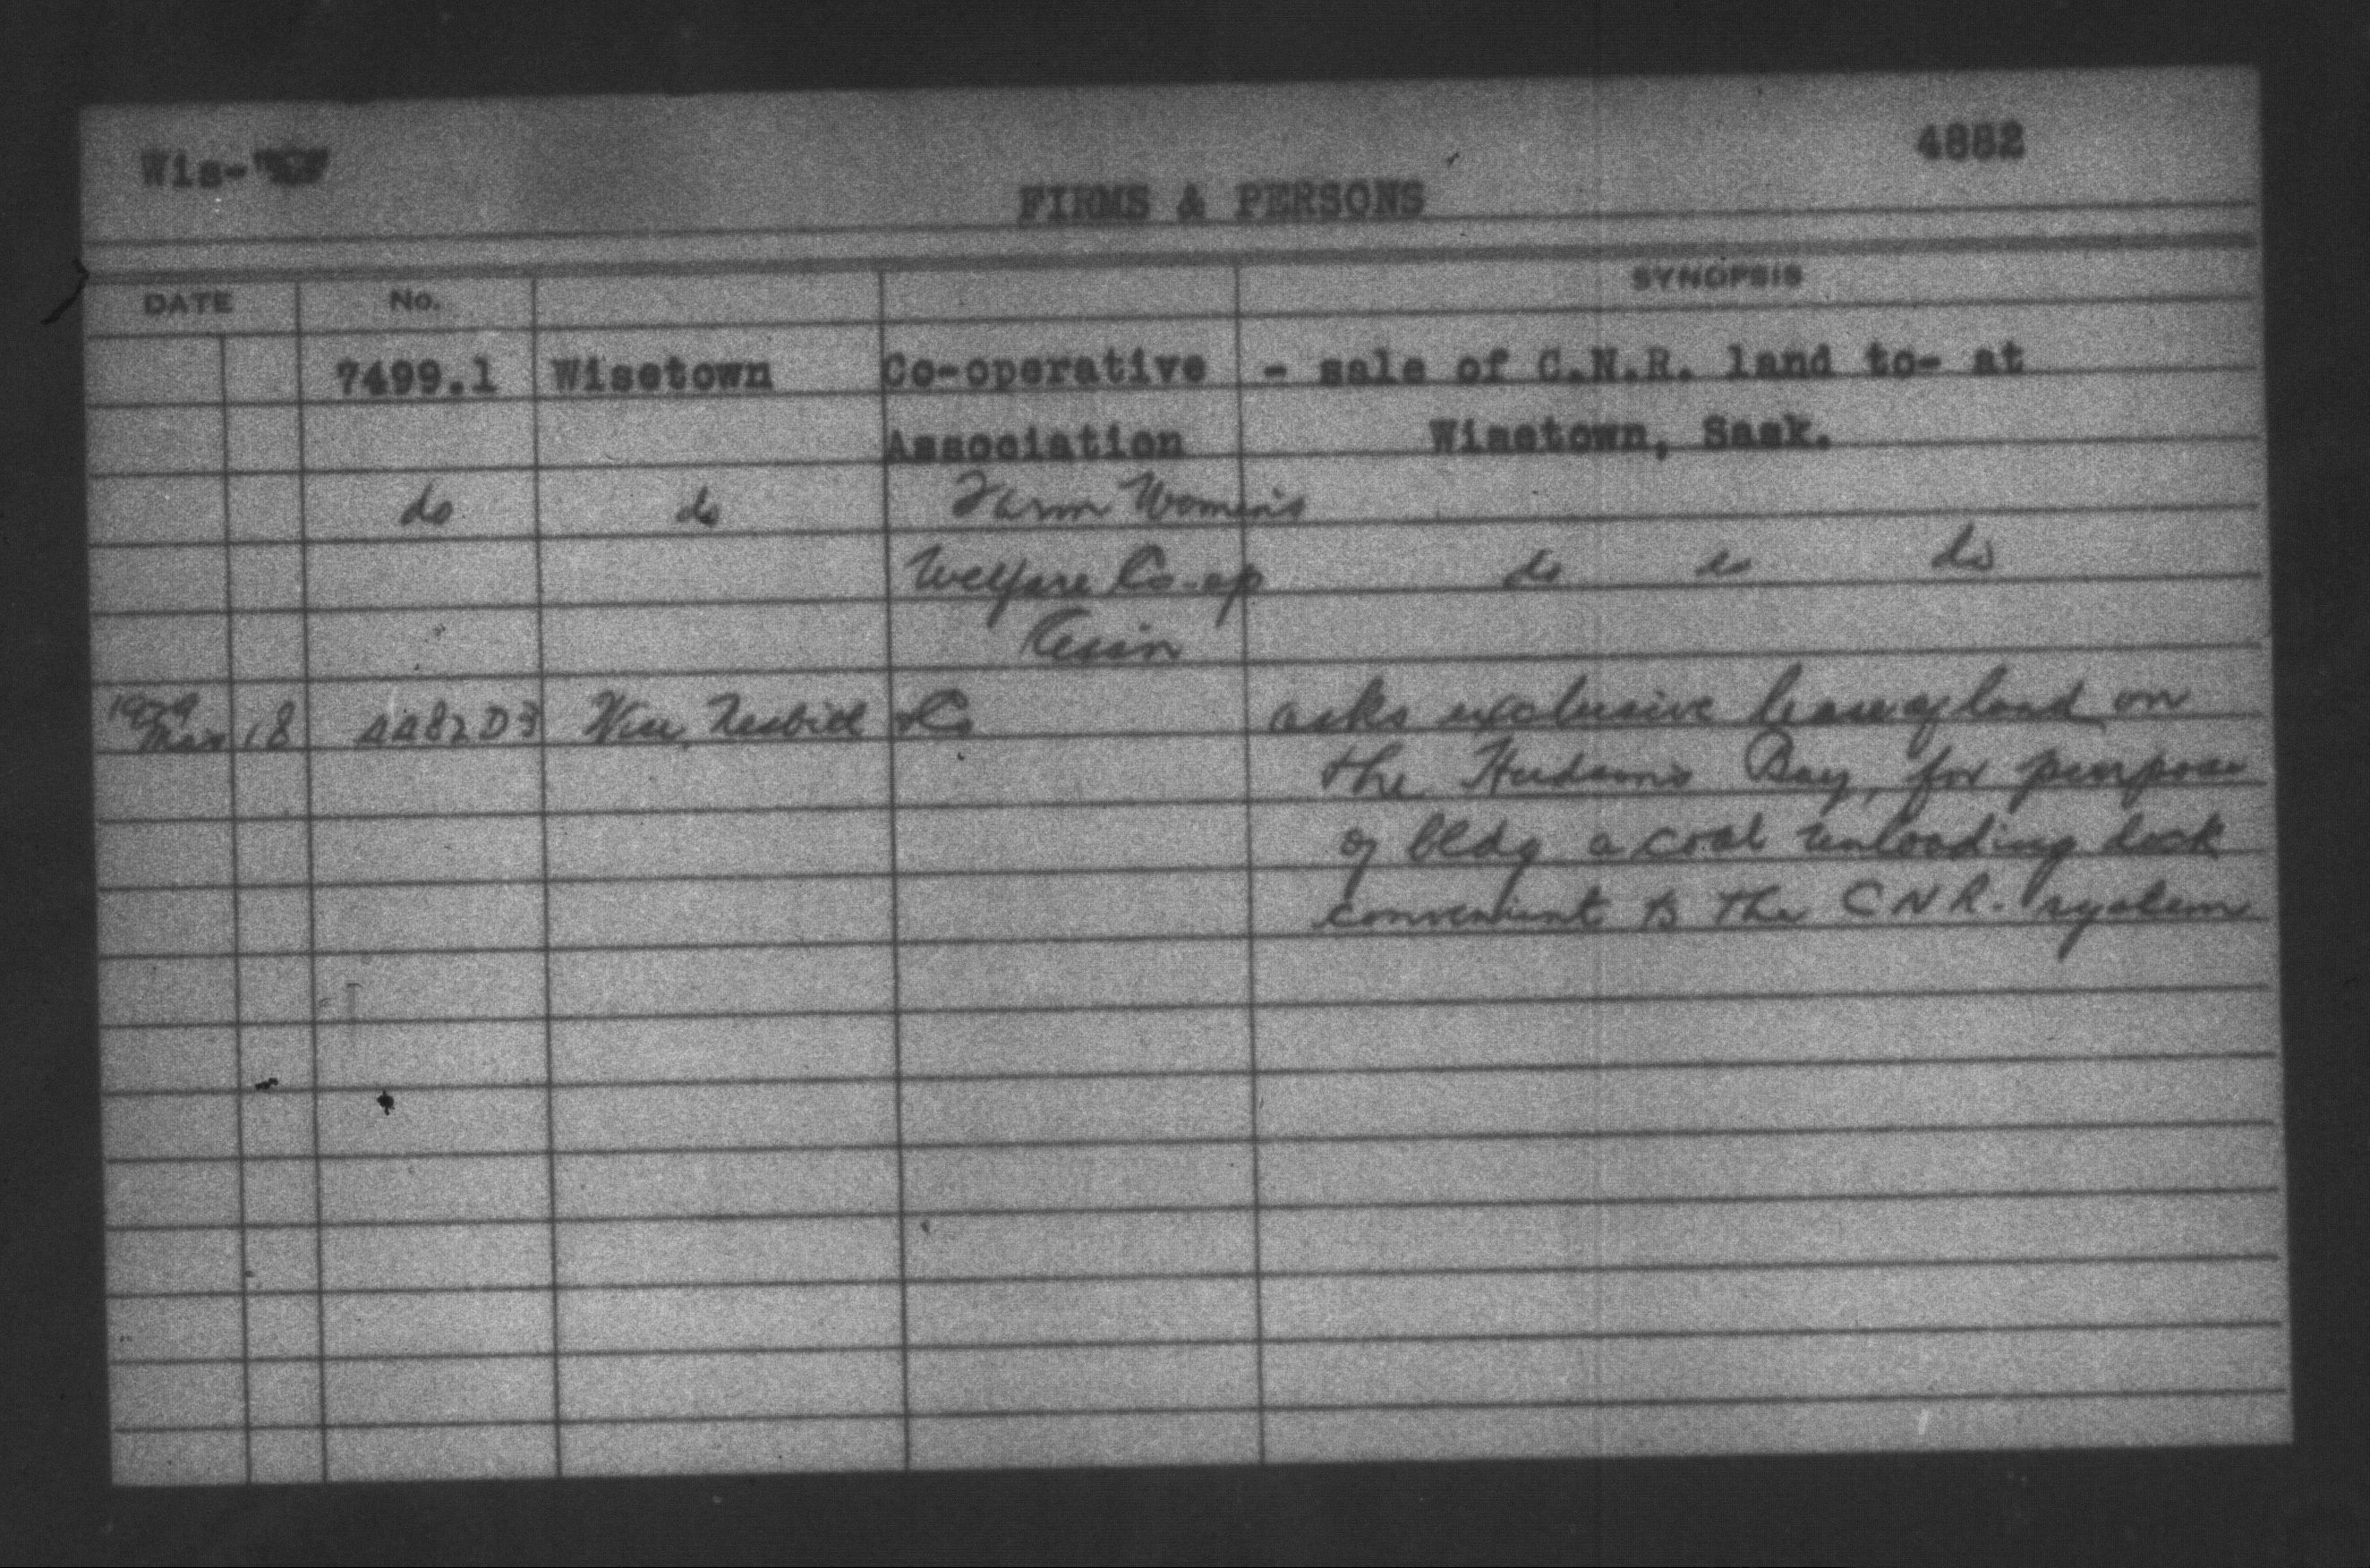 Wis-
4882
FIRMS & PERSONS
DATE No. SYNOPSIS
7499.1 Wisetown Co-operative - sale of C.N.R. land to- at
Association Wisetown, Sask.
do do Farm Women's
Welfare Co-op do do do
Assn
1929
Mar 18 AA82D3 Wise, Nesbitt & Co asks exclusive lease of land on
the Hudson's Bay, for purpose
of bldg a coal unloading dock
convenient to the C N R. system